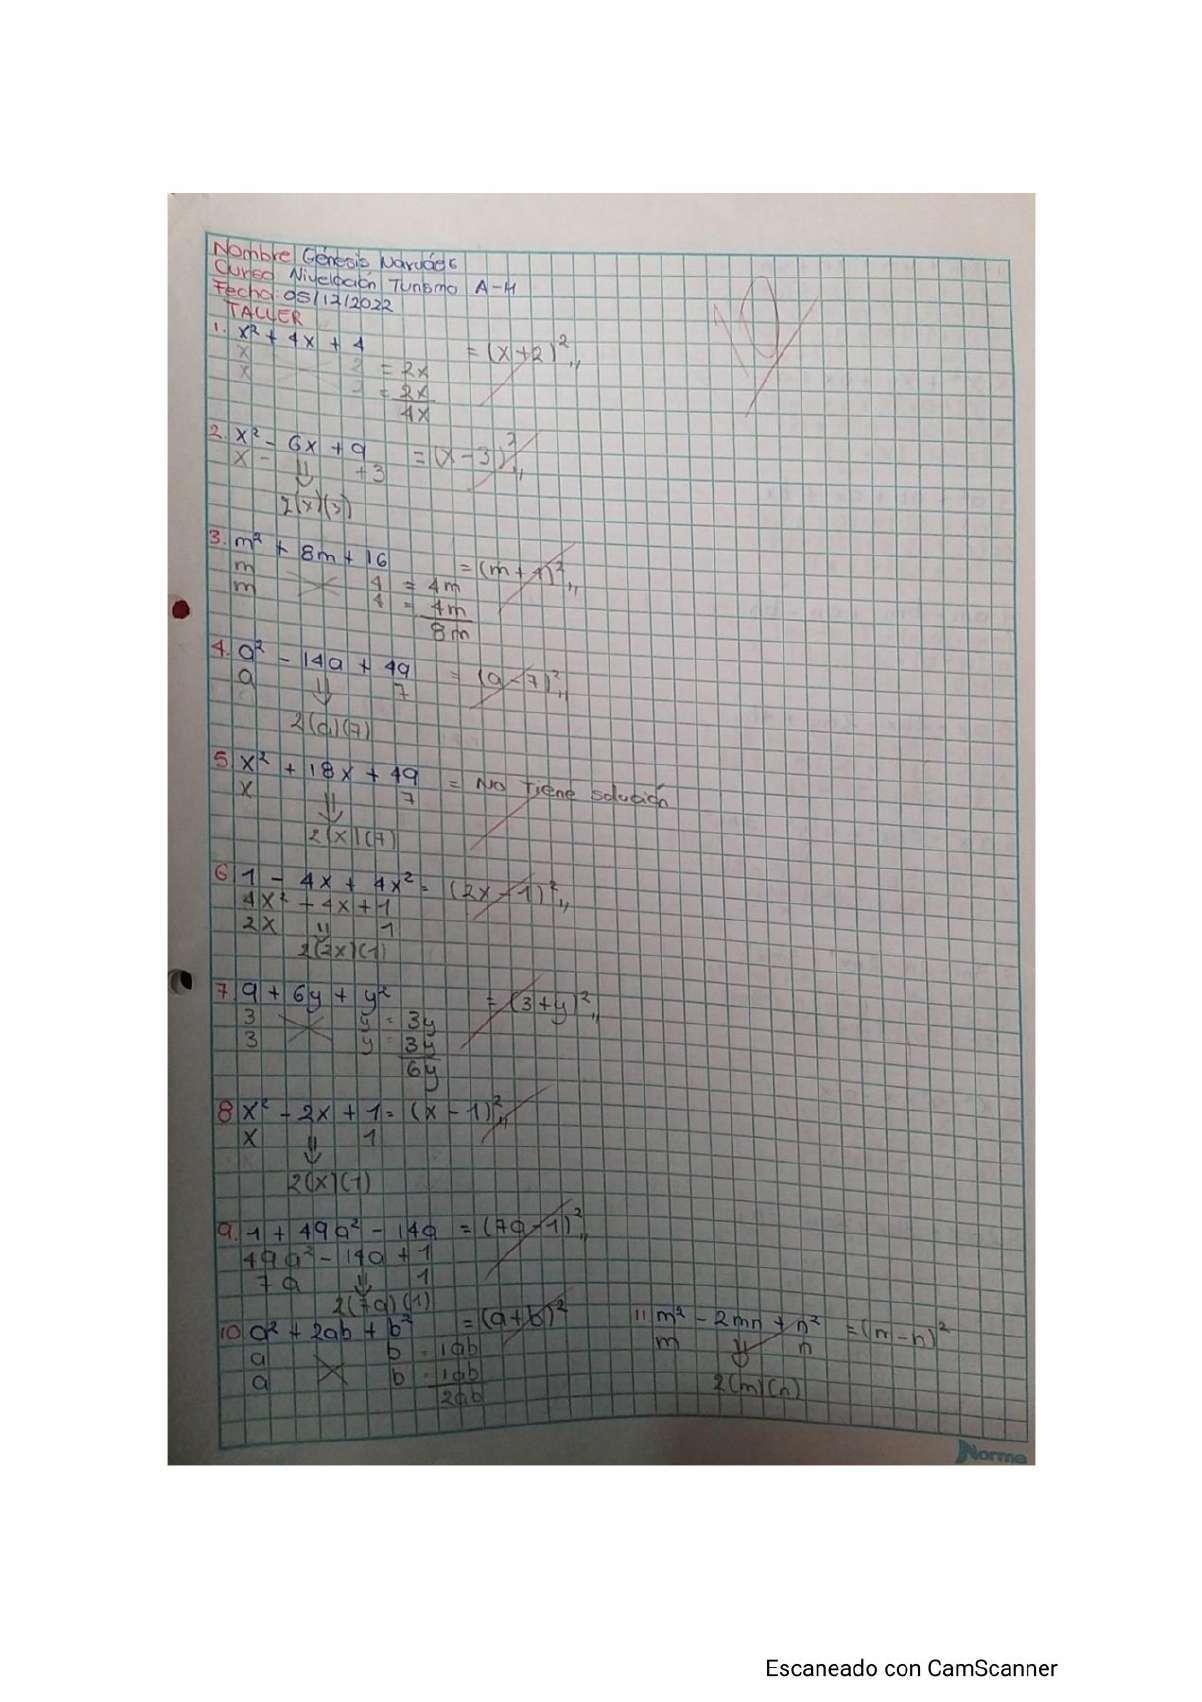 Nombre Génesis Narváes
Curso Nivelación Turismo A-H
Fecha: 05/12/2022
TALLER
1. x² + 4x + 4 = (x+2)²,,
x 2 = 2x
x 2 = 2x
4x
2. x² - 6x + 9 = (x-3)²,,
x - +3
2(x)(3)
3. m² + 8m + 16 = (m+4)²,,
m 4 = 4m
m 4 = 4m
8m
4. a² - 14a + 49 = (a-7)²,,
a 7
2(a)(7)
5 x² + 18x + 49 = No Tiene solución
x 7
2(x)(7)
6 1 - 4x + 4x² = (2x-1)²,,
4x² - 4x + 1
2x 1
2(2x)(1)
7. 9 + 6y + y² = (3+y)²,,
3 y = 3y
3 y = 3y
6y
8 x² - 2x + 1 = (x-1)²,,
x 1
2(x)(1)
9. 1 + 49a² - 14a = (7a-1)²,,
49a² - 14a + 1
7a 1
2(7a)(1)
10 a² + 2ab + b² = (a+b)²
a b = 1ab
a b = 1ab
2ab
11 m² - 2mn + n² = (m-n)²
m n
2(m)(n)
Norma
Escaneado con CamScanner